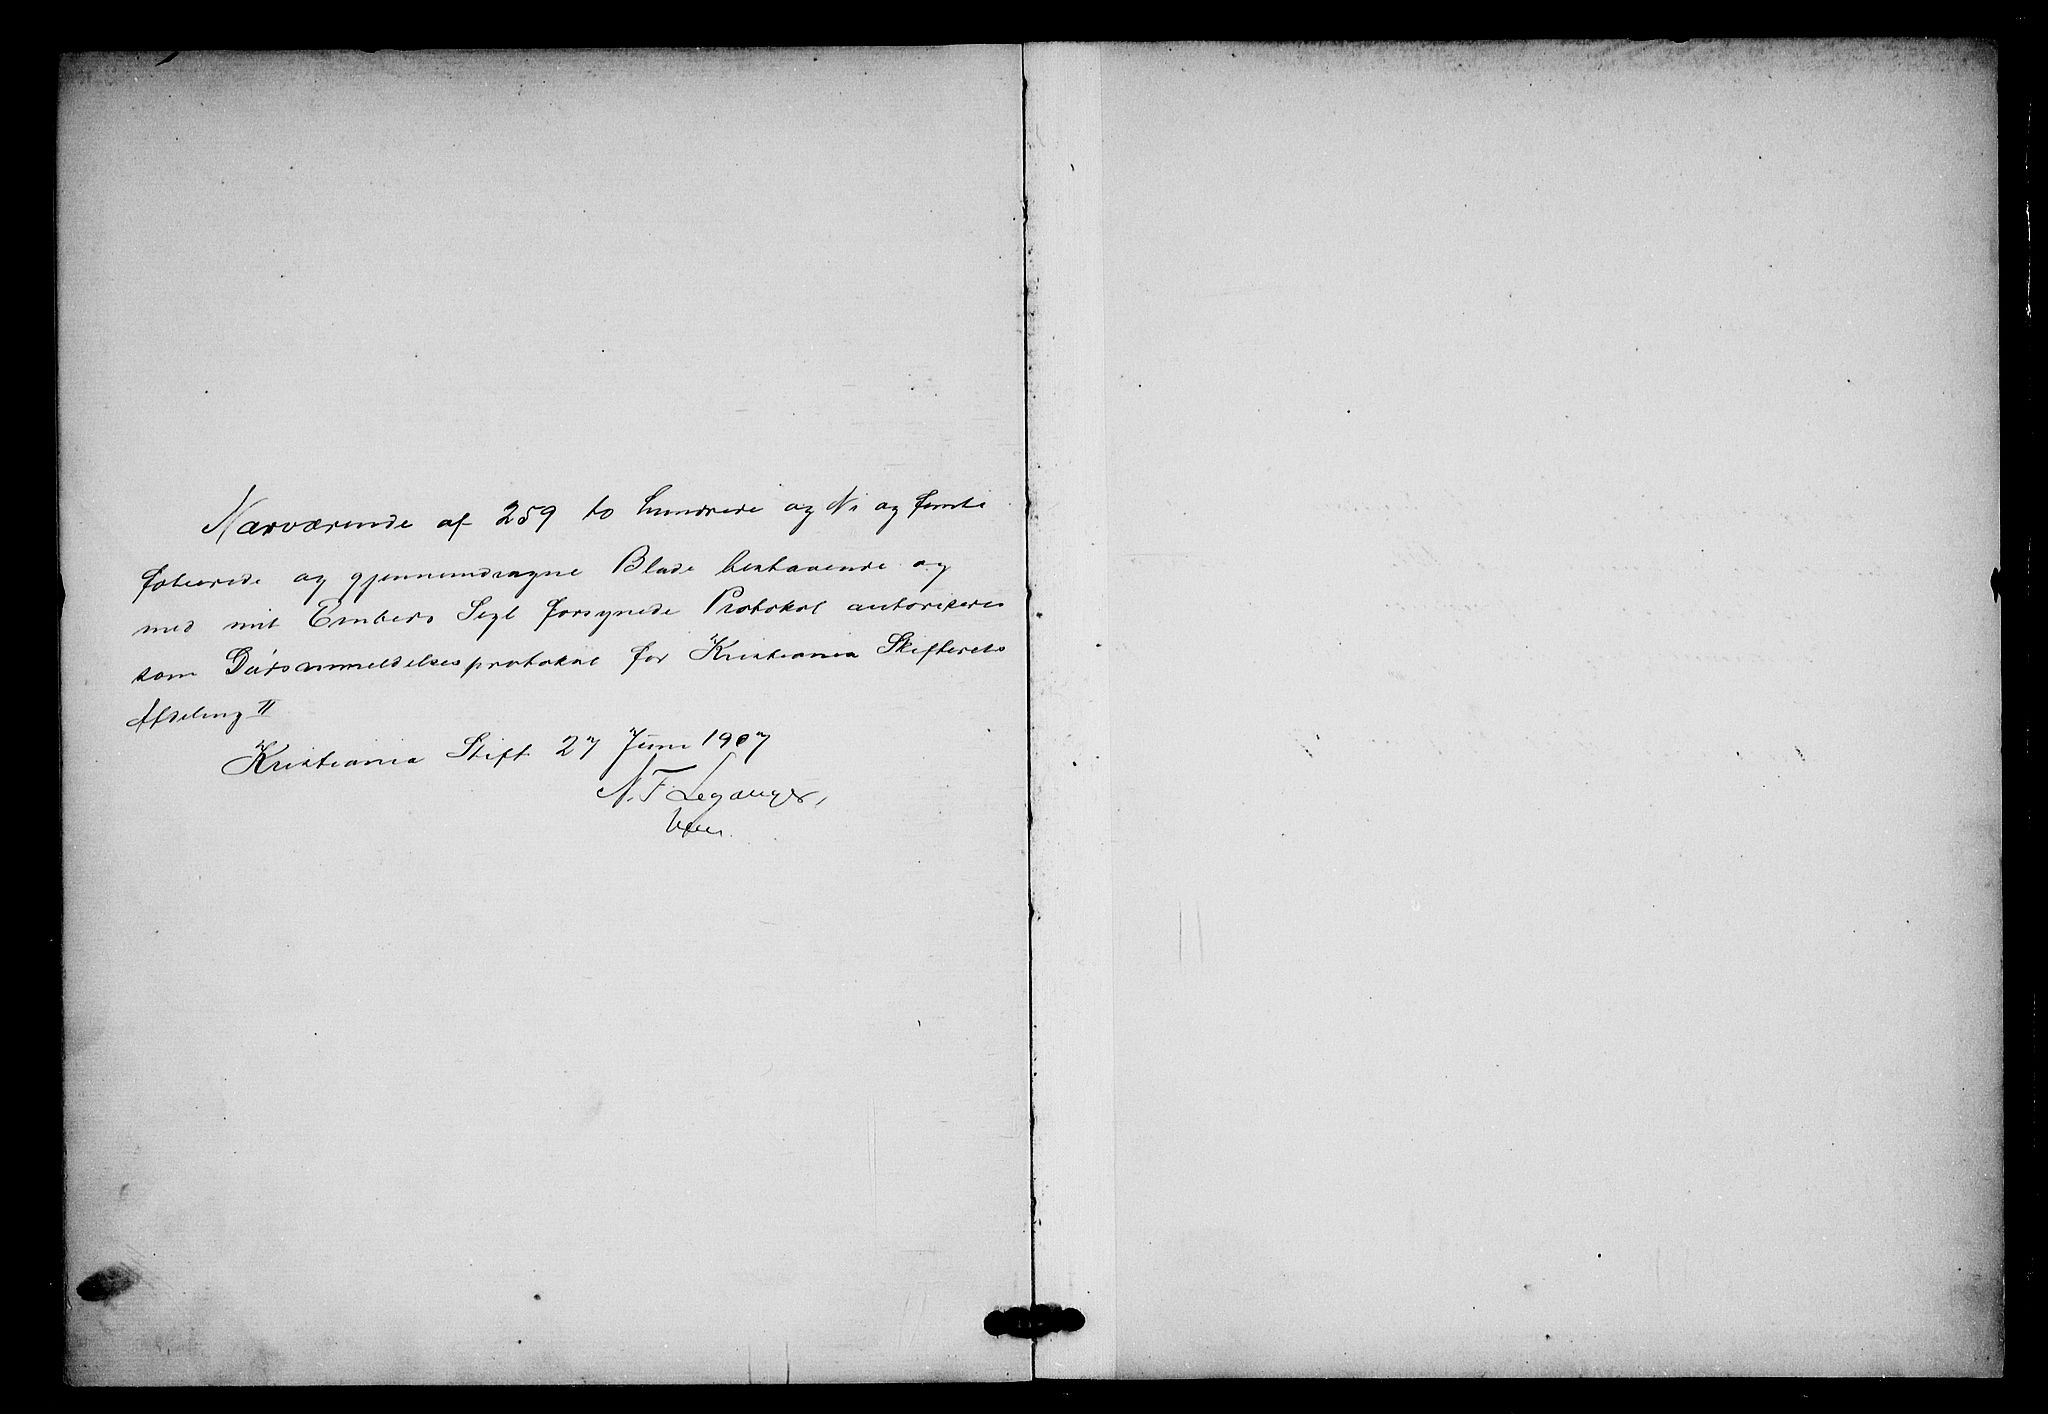 Nærværende af 259 to hundrede og Ni og femti
folierede og gjennemdragne Blade bestaaende og
med mit Embeds Segl forsynede Protokol autoriseres
som Dødsanmeldelsesprotokol for Kristiania Skifterets
Afdeling II
Kristiania Stift 27 Juni 1907
N. F. Leganger,